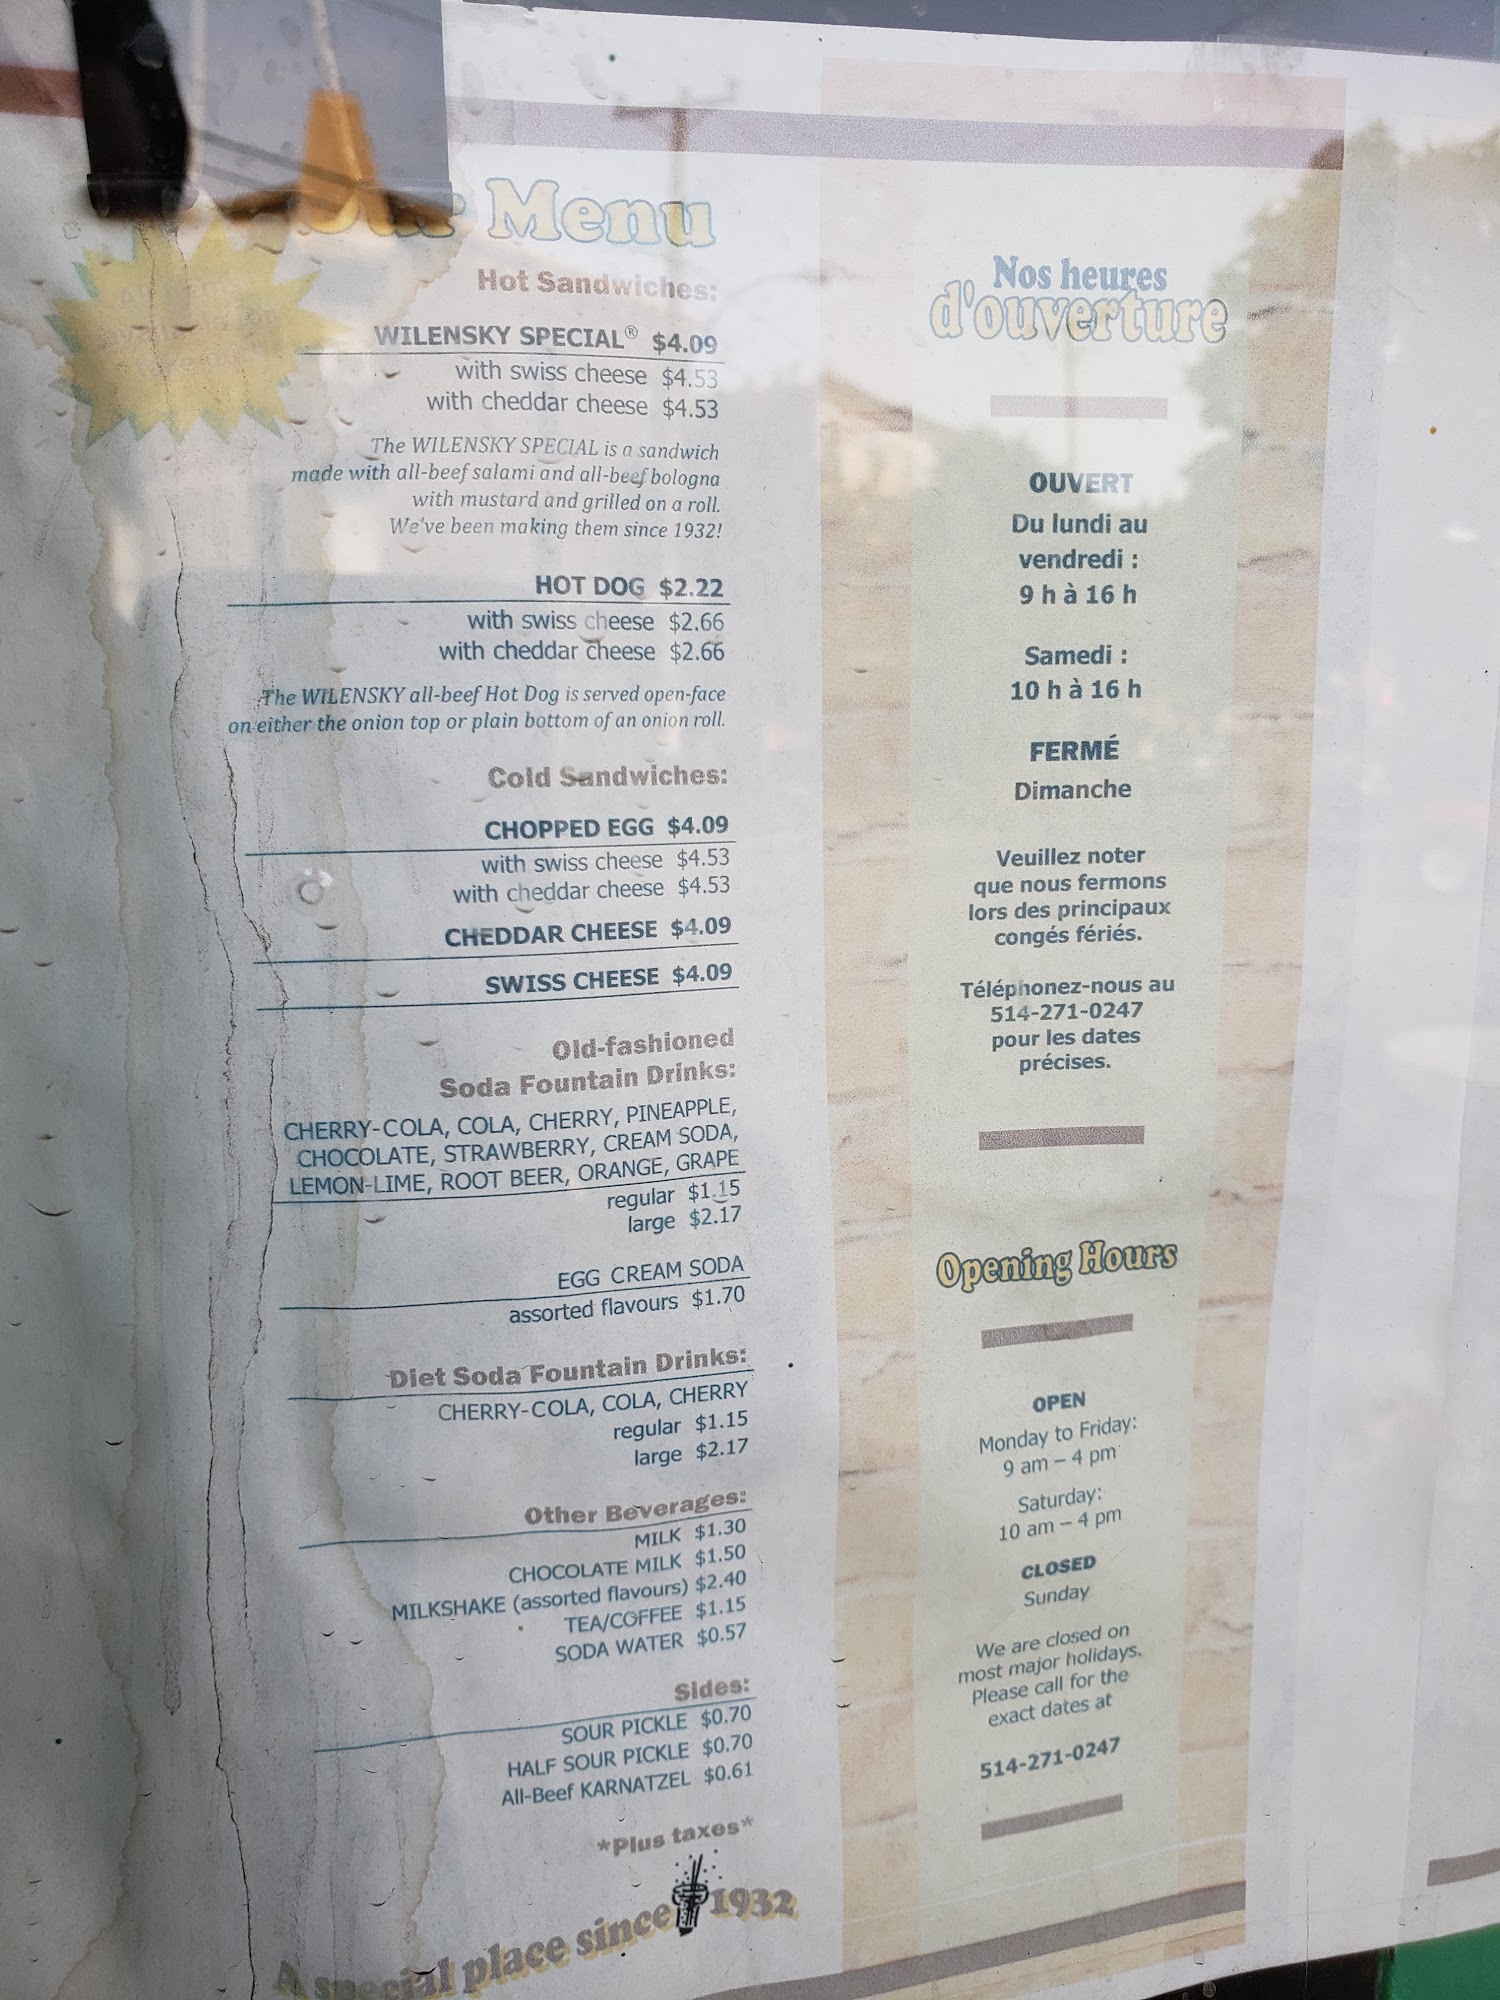 Our Menu
Hot Sandwiches:
WILENSKY SPECIAL® $4.09
with swiss cheese $4.53
with cheddar cheese $4.53
The WILENSKY SPECIAL is a sandwich
made with all-beef salami and all-beef bologna
with mustard and grilled on a roll.
We've been making them since 1932!
HOT DOG $2.22
with swiss cheese $2.66
with cheddar cheese $2.66
The WILENSKY all-beef Hot Dog is served open-face
on either the onion top or plain bottom of an onion roll.
Cold Sandwiches:
CHOPPED EGG $4.09
with swiss cheese $4.53
with cheddar cheese $4.53
CHEDDAR CHEESE $4.09
SWISS CHEESE $4.09
Old-fashioned
Soda Fountain Drinks:
CHERRY-COLA, COLA, CHERRY, PINEAPPLE,
CHOCOLATE, STRAWBERRY, CREAM SODA,
LEMON-LIME, ROOT BEER, ORANGE, GRAPE
regular $1.15
large $2.17
EGG CREAM SODA
assorted flavours $1.70
Diet Soda Fountain Drinks:
CHERRY-COLA, COLA, CHERRY
regular $1.15
large $2.17
Other Beverages:
MILK $1.30
CHOCOLATE MILK $1.50
MILKSHAKE (assorted flavours) $2.40
TEA/COFFEE $1.15
SODA WATER $0.57
Sides:
SOUR PICKLE $0.70
HALF SOUR PICKLE $0.70
All-Beef KARNATZEL $0.61
*Plus taxes*
A special place since 1932
Nos heures
d'ouverture
OUVERT
Du lundi au
vendredi :
9 h à 16 h
Samedi :
10 h à 16 h
FERMÉ
Dimanche
Veuillez noter
que nous fermons
lors des principaux
congés fériés.
Téléphonez-nous au
514-271-0247
pour les dates
précises.
Opening Hours
OPEN
Monday to Friday:
9 am – 4 pm
Saturday:
10 am – 4 pm
CLOSED
Sunday
We are closed on
most major holidays.
Please call for the
exact dates at
514-271-0247